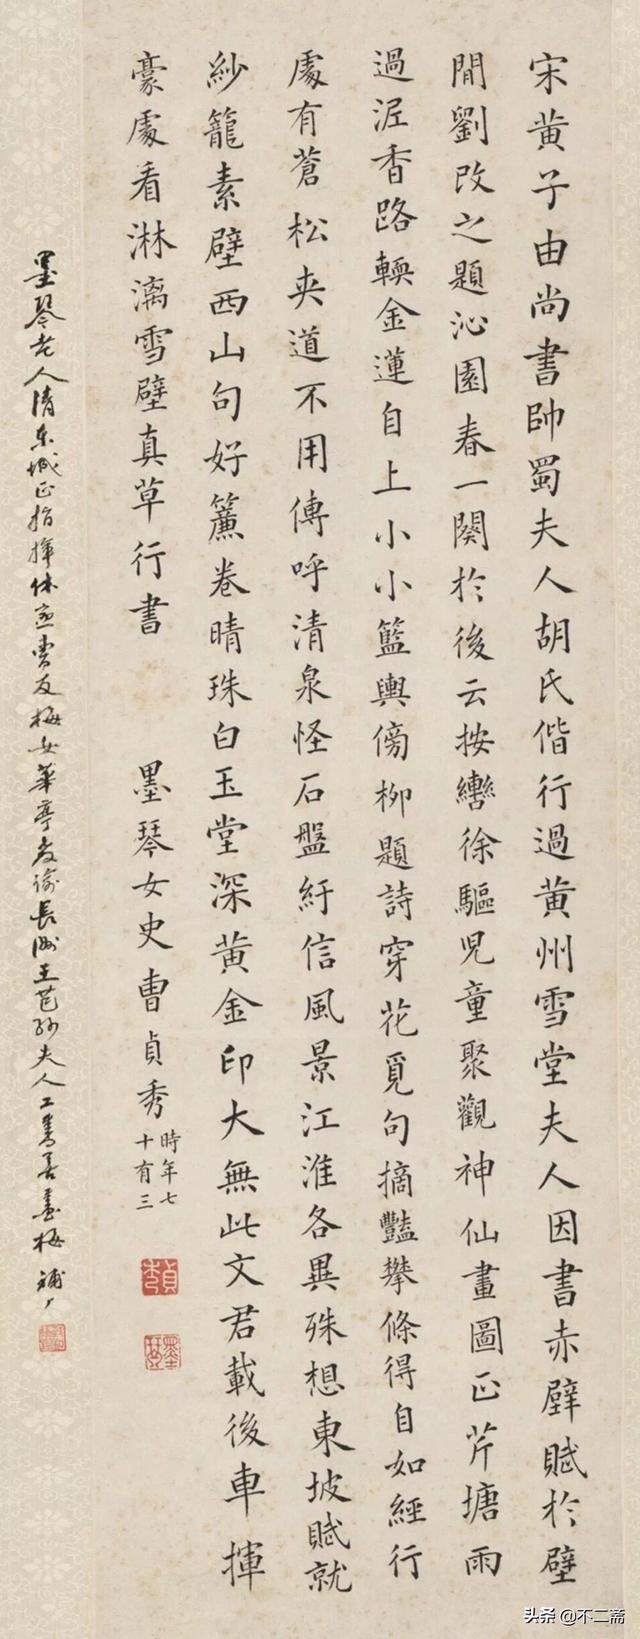 宋黄子由尚書帥蜀夫人胡氏偕行過黄州雪堂夫人因書赤壁賦於壁
閒劉改之題沁園春一闋於後云按轡徐驅児童聚觀神仙畫圖正芹塘雨
過泥香路輭金蓮自上小小籃輿傍栁題詩穿花覓句摘豔攀條得自如經行
處有蒼松夹道不用傳呼清泉怪石盤紆信風景江淮各異殊想東坡賦就
紗籠素壁西山句好簾卷晴珠白玉堂深黄金印大無此文君載後車揮
豪處看淋漓雪壁真草行書
墨琴女史曹貞秀
時年七
十有三
貞秀
墨琴
墨琴老人清東城正指揮休寧曹友梅女華亭教諭長洲王芑孙夫人工書善畫梅
头条 @不二斋